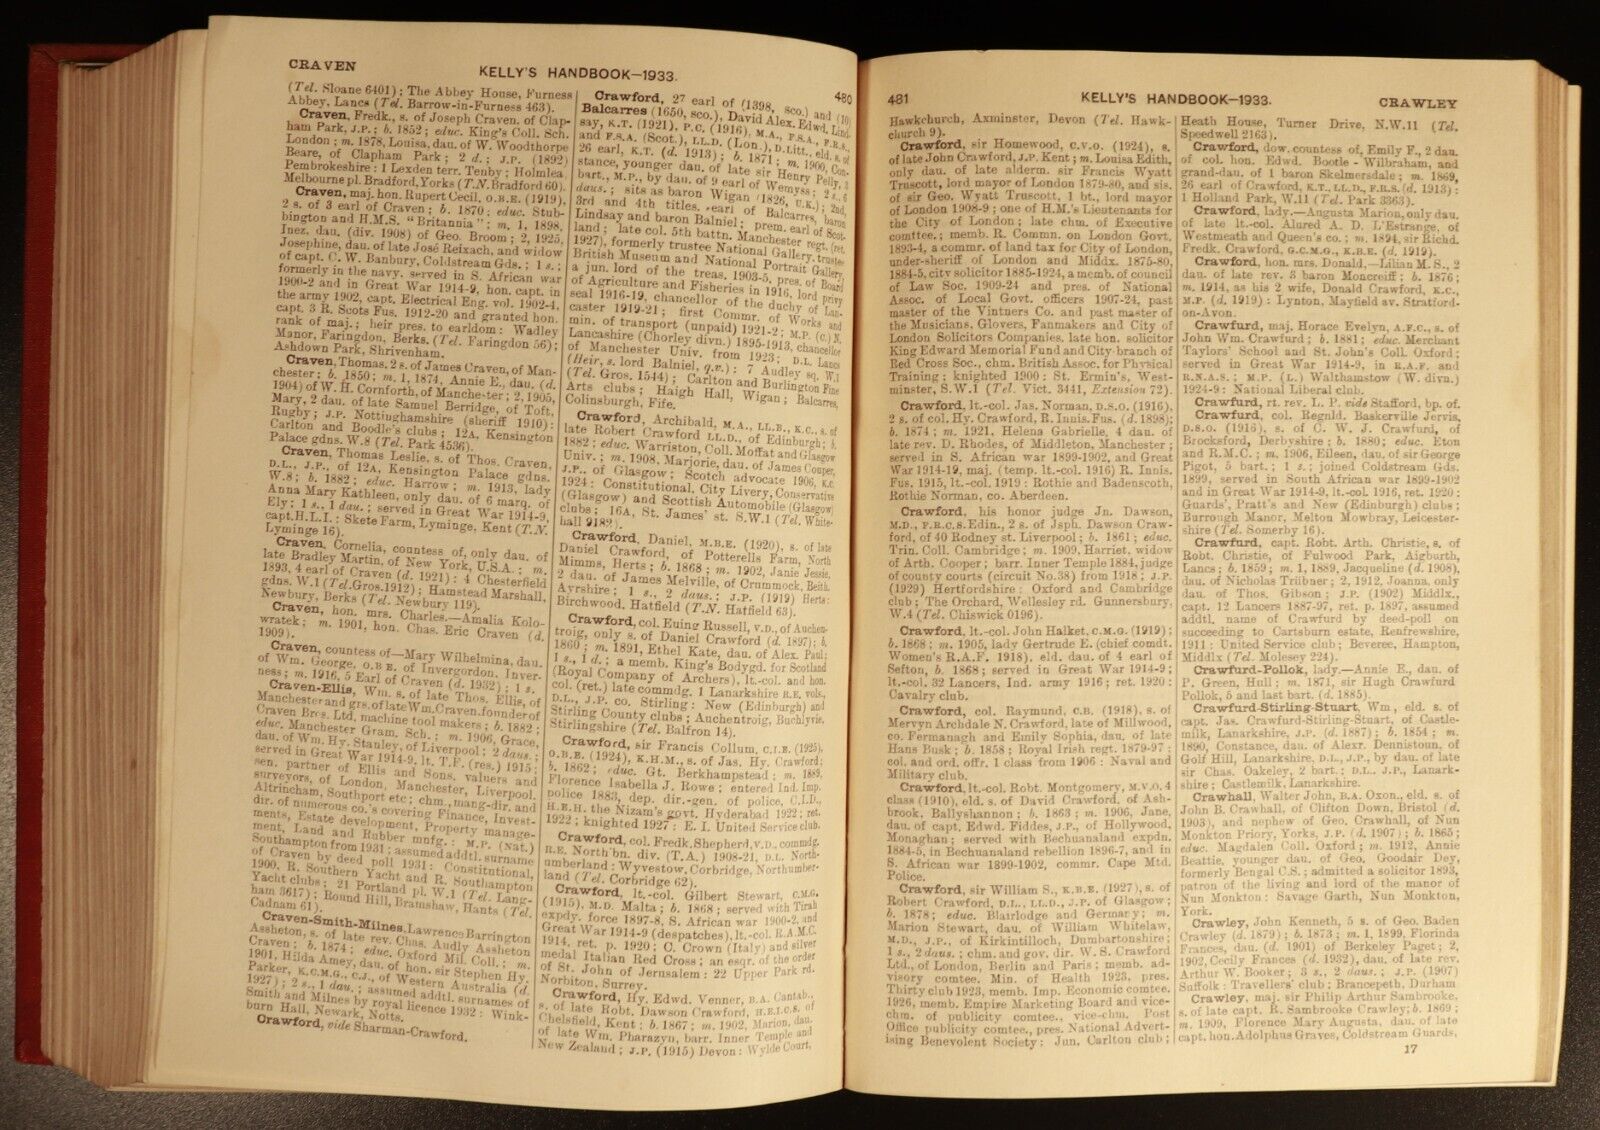 CRAVEN
KELLY'S HANDBOOK—1933.
480
(Tel. Sloane 6401); The Abbey House, Furness
Abbey, Lancs (Tel. Barrow-in-Furness 463).
Craven, Fredk., s. of Joseph Craven. of Clap-
ham Park, J.P.; b. 1852; educ. King's Coll. Sch.
London; m. 1878, Louisa, dau. of W. Woodthorpe
Beare, of Clapham Park; 2 d.: J.P. (1892)
Pembrokeshire: 1 Lexden terr. Tenby; Holmlea,
Melbourne pl. Bradford, Yorks (T.N. Bradford 60).
Craven, maj. hon. Rupert Cecil, O.B.E. (1919),
2 s. of 3 earl of Craven; b. 1870; educ. Stub-
bington and H.M.S. "Britannia"; m. 1, 1898,
Inez, dau. (div. 1908) of Geo. Broom; 2, 1925,
Josephine, dau. of late José Reixach, and widow
of capt. C. W. Banbury, Coldstream Gds.; 1 s.;
formerly in the navy. served in S. African war
1900-2 and in Great War 1914-9, hon. capt. in
the army 1902, capt. Electrical Eng. vol. 1902-4,
capt. 3 R. Scots Fus. 1912-20 and granted hon.
rank of maj.; heir pres. to earldom: Wadley
Manor, Faringdon, Berks. (Tel. Faringdon 56);
Ashdown Park, Shrivenham.
Craven, Thomas, 2 s. of James Craven, of Man-
chester; b. 1850; m. 1, 1874, Annie E., dau. (d.
1904) of W. H. Cornforth, of Manchester; 2, 1905,
Mary, 2 dau. of late Samuel Berridge, of Toft,
Rugby; J.P. Nottinghamshire (sheriff 1910):
Carlton and Boodle's clubs; 12A, Kensington
Palace gdns. W.8 (Tel. Park 4536).
Craven, Thomas Leslie, s. of Thos. Craven,
D.L., J.P., of 12A, Kensington Palace gdns.
W.8; b. 1882; educ. Harrow; m. 1913, lady
Anna Mary Kathleen, only dau. of 6 marq. of
Ely; 1 s., 1 dau.; served in Great War 1914-9,
capt. H.L.I.: Skete Farm, Lyminge, Kent (T.N.
Lyminge 16).
Craven, Cornelia, countess of, only dau. of
late Bradley Martin, of New York, U.S.A.; m.
1893, 4 earl of Craven (d. 1921): 4 Chesterfield
gdns. W.1 (Tel. Gros. 1912); Hamstead Marshall,
Newbury, Berks (Tel. Newbury 119).
Craven, hon. mrs. Charles.—Amalia Kolo-
wratek; m. 1901, hon. Chas. Eric Craven (d.
1909).
Craven, countess of—Mary Wilhelmina, dau.
of Wm. George, O.B.E. of Invergordon. Inver-
ness; m. 1916, 5 Earl of Craven (d. 1932); 1 s.
Craven-Ellis, Wm. s. of late Thos. Ellis, of
Manchester and grs. of late Wm. Craven, founder of
Craven Bros. Ltd, machine tool makers; b. 1882;
educ. Manchester Gram. Sch.; m. 1906, Grace,
dau. of Wm. Hy. Stanley, of Liverpool; 2 daus.;
served in Great War 1914-9, lt. T.F. (res.) 1915;
sen. partner of Ellis and Sons. valuers and
surveyors, of London, Manchester, Liverpool,
Altrincham, Southport etc; chm., mang-dir. and
dir. of numerous co.'s covering Finance, Invest-
ments, Estate development, Property manage-
ment, Land and Rubber mnfg.: M.P. (Nat.)
Southampton from 1931; assumed addtl. surname
of Craven by deed poll 1931: Constitutional,
1900, R. Southern Yacht and R. Southampton
Yacht clubs; 21 Portland pl. W.1 (Tel. Lang-
ham 3617); Round Hill, Bramshaw, Hants (Tel.
Cadnam 61).
Craven-Smith-Milnes, Lawrence Barrington
Assheton, s. of late rev. Chas. Audly Assheton
Craven; b. 1874; educ. Oxford Mil. Coll.; m.
1901, Hilda Amey, dau. of hon. sir Stephen Hy.
Parker, K.C.M.G., C.J., of Western Australia (d.
1927); 2 s., 1 dau.; assumed addtl. surnames of
Smith and Milnes by royal licence 1932: Wink-
burn Hall, Newark, Notts.
Crawford, vide Sharman-Crawford.
Crawford, 27 earl of (1398, sco.) and (10)
Balcarres (1650, sco.), David Alex. Edwd. Lind-
say, K.T. (1921), P.C. (1916), M.A., P.S.A., F.R.S.,
and F.S.A. (Scot.), LL.D. (Lon.), D.Litt., eld. s. of
26 earl, K.T. (d. 1913); b. 1871; m. 1900, Con-
stance, younger dau. of late sir Henry Pelly, 3
bart., M.P., by dau. of 9 earl of Wemyss; 2 s., 6
daus.; sits as baron Wigan (1826, U.K.); 2nd,
3rd and 4th titles. earl of Balcarres, baron
Lindsay and baron Balniel; prem. earl of Scot-
land; late col. 5th battn. Manchester regt. (ret.
1927), formerly trustee National Gallery. trustee
British Museum and National Portrait Gallery,
a jun. lord of the treas. 1903-5, pres. of Board
of Agriculture and Fisheries in 1916, lord privy
seal 1916-19, chancellor of the duchy of Lan-
caster 1919-21; first Commr. of Works and
min. of transport (unpaid) 1921-2; M.P. (C.) N.
Lancashire (Chorley divn.) 1895-1913, chancellor
of Manchester Univ. from 1923; D.L. Lancs
(Heir, s. lord Balniel, q.v.): 7 Audley sq. W.1
(Tel. Gros. 1544); Carlton and Burlington Fine
Arts clubs; Haigh Hall, Wigan; Balcarres,
Colinsburgh, Fife.
Crawford, Archibald, M.A., LL.B., K.C., s. of
late Robert Crawford LL.D., of Edinburgh; b.
1882; educ. Warriston, Coll. Moffat and Glasgow
Univ.; m. 1908, Marjorie, dau. of James Couper,
J.P., of Glasgow; Scotch advocate 1906, K.C.
1924: Constitutional, City Livery, Conservative
(Glasgow) and Scottish Automobile (Glasgow)
clubs; 16A, St. James' st. S.W.1 (Tel. White-
hall 9182).
Crawford, Daniel, M.B.E. (1920), s. of late
Daniel Crawford, of Potterells Farm, North
Mimms, Herts; b. 1868; m. 1902, Janie Jessie,
2 dau. of James Melville, of Crummock, Beith,
Ayrshire; 1 s., 2 daus.; J.P. (1919) Herts:
Birchwood, Hatfield (T.N. Hatfield 63).
Crawford, col. Euing Russell, V.D., of Auchen-
troig, only s. of Daniel Crawford (d. 1897); b.
1860; m. 1891, Ethel Kate, dau. of Alex. Paul;
1 s., 1 d.; a memb. King's Bodygd. for Scotland
(Royal Company of Archers), lt.-col. and hon.
col. (ret.) late commdg. 1 Lanarkshire R.E. vols.,
D.L., J.P. co. Stirling: New (Edinburgh) and
Stirling County clubs; Auchentroig, Buchlyvie,
Stirlingshire (Tel. Balfron 14).
Crawford, sir Francis Collum, C.I.E. (1925),
O.B.E. (1924), K.H.M., s. of Jas. Hy. Crawford;
b. 1862; educ. Gt. Berkhampstead; m. 1889,
Florence Isabella J. Rowe; entered Ind. Imp.
police 1883, dep. dir.-gen. of police, C.I.D.,
H.E.H. the Nizam's govt. Hyderabad 1922; ret.
1922; knighted 1927: E. I. United Service club.
Crawford, col. Fredk. Shepherd, V.D., commdg.
R.E. North'bn. div. (T.A.) 1908-21, D.L. North-
umberland: Wyvestow, Corbridge, Northumber-
land (Tel. Corbridge 62).
Crawford, lt.-col. Gilbert Stewart, C.M.G.
(1915), M.D. Malta; b. 1868; served with Tirah
expdy. force 1897-8, S. African war 1900-2, and
Great War 1914-9 (despatches), lt.-col. R.A.M.C.
1914, ret. p. 1920; C. Crown (Italy) and silver
medal Italian Red Cross; an esqr. of the order
of St. John of Jerusalem: 22 Upper Park rd.
Norbiton, Surrey.
Crawford, Hy. Edwd. Venner, B.A. Cantab.,
s. of late Robt. Dawson Crawford, H.E.I.C.S. of
Chelsfield, Kent; b. 1867; m. 1902, Marion, dau.
of late Wm. Pharazyn, barr. Inner Temple and
New Zealand; J.P. (1915) Devon: Wylde Court,
481
KELLY'S HANDBOOK—1933.
CRAWLEY
Hawkchurch, Axminster, Devon (Tel. Hawk-
church 9).
Crawford, sir Homewood, C.V.O. (1924), s.
of late John Crawford, J.P. Kent; m. Louisa Edith,
only dau. of late alderm. sir Francis Wyatt
Truscott, lord mayor of London 1879-80, and sis.
of sir Geo. Wyatt Truscott, 1 bt., lord mayor
of London 1908-9; one of H.M.'s Lieutenants for
the City of London; late chm. of Executive
comttee.; memb. R. Commn. on London Govt.
1893-4, a commr. of land tax for City of London,
under-sheriff of London and Middx. 1875-80,
1884-5, city solicitor 1885-1924, a memb. of council
of Law Soc. 1909-24 and pres. of National
Assoc. of Local Govt. officers 1907-24, past
master of the Vintners Co. and past master of
the Musicians. Glovers, Fanmakers and City of
London Solicitors Companies. late hon. solicitor
King Edward Memorial Fund and City branch of
Red Cross Soc., chm. British Assoc. for Physical
Training; knighted 1900: St. Ermin's, West-
minster, S.W.1 (Tel. Vict. 3441, Extension 72).
Crawford, lt.-col. Jas. Norman, D.S.O. (1916),
2 s. of col. Hy. Crawford, R. Innis. Fus. (d. 1898);
b. 1874; m. 1921, Helena Gabrielle, 4 dau. of
late rev. D. Rhodes, of Middleton, Manchester;
served in S. African war 1899-1902, and Great
War 1914-19, maj. (temp. lt.-col. 1916) R. Innis.
Fus. 1915, lt.-col. 1919: Rothie and Badenscoth,
Rothie Norman, co. Aberdeen.
Crawford, his honor judge Jn. Dawson,
M.D., F.R.C.S. Edin., 2 s. of Jsph. Dawson Craw-
ford, of 40 Rodney st. Liverpool; b. 1861; educ.
Trin. Coll. Cambridge; m. 1909, Harriet, widow
of Arth. Cooper; barr. Inner Temple 1884, judge
of county courts (circuit No. 38) from 1918; J.P.
(1929) Hertfordshire: Oxford and Cambridge
club; The Orchard, Wellesley rd. Gunnersbury,
W.4 (Tel. Chiswick 0196).
Crawford, lt.-col. John Halket, C.M.G. (1919);
b. 1868; m. 1905, lady Gertrude E. (chief comdt.
Women's R.A.F. 1918), eld. dau. of 4 earl of
Sefton, b. 1868; served in Great War 1914-9;
lt.-col. 32 Lancers, Ind. army 1916; ret. 1920:
Cavalry club.
Crawford, col. Raymund, C.B. (1918), s. of
Mervyn Archdale N. Crawford, late of Millwood,
co. Fermanagh and Emily Sophia, dau. of late
Hans Busk; b. 1858; Royal Irish regt. 1879-97;
col. and ord. offr. 1 class from 1906: Naval and
Military club.
Crawford, lt.-col. Robt. Montgomery, M.V.O. 4
class (1910), eld. s. of David Crawford, of Ash-
brook, Ballyshannon; b. 1863; m. 1906, Jane,
dau. of capt. Edwd. Fiddes, J.P., of Hollywood,
Monaghan; served with Bechuanaland expdn.
1884-5, in Bechuanaland rebellion 1896-7, and in
S. African war 1899-1902, commr. Cape Mtd.
Police.
Crawford, sir William S., K.B.E. (1927), s. of
Robert Crawford, D.L., LL.D., J.P. of Glasgow;
b. 1878; educ. Blairlodge and Germany; m.
Marion Stewart, dau. of William Whitelaw,
M.D., J.P., of Kirkintilloch, Dumbartonshire;
1 s., 2 daus.; chm. and gov. dir. W. S. Crawford
Ltd., of London, Berlin and Paris; memb. ad-
visory comtee. Min. of Health 1923, pres.
Thirty club 1923, memb. Imp. Economic comtee.
1926, memb. Empire Marketing Board and vice-
chm. of publicity comtee., vice-chm. Post
Office publicity comtee., pres. National Advert-
ising Benevolent Society: Jun. Carlton club;
Heath House, Turner Drive, N.W.11 (Tel.
Speedwell 2163).
Crawford, dow. countess of, Emily F., 2 dau.
of col. hon. Edwd. Bootle-Wilbraham, and
grand-dau. of 1 baron Skelmersdale; m. 1869,
26 earl of Crawford, K.T., LL.D., F.R.S. (d. 1913):
1 Holland Park, W.11 (Tel. Park 3363).
Crawford, lady.—Augusta Marion, only dau.
of late lt.-col. Alured A. D. L'Estrange, of
Westmeath and Queen's co.; m. 1894, sir Richd.
Fredk. Crawford, G.C.M.G., K.B.E. (d. 1919).
Crawford, hon. mrs. Donald,—Lilian M. S., 2
dau. of late rev. 3 baron Moncreiff; b. 1876;
m. 1914, as his 2 wife, Donald Crawford, K.C.,
M.P. (d. 1919): Lynton, Mayfield av. Stratford-
on-Avon.
Crawfurd, maj. Horace Evelyn, A.F.C., s. of
John Wm. Crawfurd; b. 1881; educ. Merchant
Taylors' School and St. John's Coll. Oxford;
served in Great War 1914-9, in R.A.F. and
R.N.A.S.; M.P. (L.) Walthamstow (W. divn.)
1924-9: National Liberal club.
Crawfurd, rt. rev. L. P. vide Stafford, bp. of.
Crawfurd, col. Regnld. Baskerville Jervis,
D.S.O. (1916), s. of C. W. J. Crawfurd, of
Brocksford, Derbyshire; b. 1880; educ. Eton
and R.M.C.; m. 1906, Eileen, dau. of sir George
Pigot, 5 bart.; 1 s.; joined Coldstream Gds.
1899, served in South African war 1899-1902
and in Great War 1914-9, lt.-col. 1916, ret. 1920:
Guards', Pratt's and New (Edinburgh) clubs;
Burrough Manor, Melton Mowbray, Leicester-
shire (Tel. Somerby 16).
Crawfurd, capt. Robt. Arth. Christie, s. of
Robt. Christie, of Fulwood Park, Aigburth,
Lancs; b. 1859; m. 1, 1889, Jacqueline (d. 1908),
dau. of Nicholas Trübner; 2, 1912, Joanna, only
dau. of Thos. Gibson; J.P. (1902) Middlx.,
capt. 12 Lancers 1887-97, ret. p. 1897, assumed
addtl. name of Crawfurd by deed-poll on
succeeding to Cartsburn estate, Renfrewshire,
1911: United Service club; Beveree, Hampton,
Middlx (Tel. Molesey 224).
Crawfurd-Pollok, lady.—Annie E., dau. of
P. Green, Hull; m. 1871, sir Hugh Crawfurd
Pollok, 5 and last bart. (d. 1885).
Crawfurd-Stirling-Stuart, Wm, eld. s. of
capt. Jas. Crawfurd-Stirling-Stuart, of Castle-
milk, Lanarkshire, J.P. (d. 1887); b. 1854; m.
1890, Constance, dau. of Alexr. Dennistoun, of
Golf Hill, Lanarkshire. D.L., J.P., by dau. of late
sir Chas. Oakeley, 2 bart.; D.L., J.P., Lanark-
shire; Castlemilk, Lanarkshire.
Crawhall, Walter John, B.A. Oxon., eld. s. of
John B. Crawhall, of Clifton Down, Bristol (d.
1903), and nephew of Geo. Crawhall, of Nun
Monkton Priory, Yorks, J.P. (d. 1907); b. 1865;
educ. Magdalen Coll. Oxford; m. 1912, Annie
Beattie, younger dau. of Geo. Goodair Dey,
formerly Bengal C.S.; admitted a solicitor 1893,
patron of the living and lord of the manor of
Nun Monkton: Savage Garth, Nun Monkton,
York.
Crawley, John Kenneth, 5 s. of Geo. Baden
Crawley (d. 1879); b. 1873; m. 1, 1899, Florinda
Frances, dau. (d. 1901) of Berkeley Paget; 2,
1902, Cecily Frances (d. 1932), dau. of late rev.
Arthur W. Booker; 3 s., 2 daus.; J.P. (1907)
Suffolk: Travellers' club; Brancepeth, Durham
Crawley, maj. sir Philip Arthur Sambrooke,
s. of late capt. R. Sambrooke Crawley; b. 1869;
m. 1909, Florence Mary Augusta, dau. of late
capt. hon. Adolphus Graves, Coldstream Guards,
17